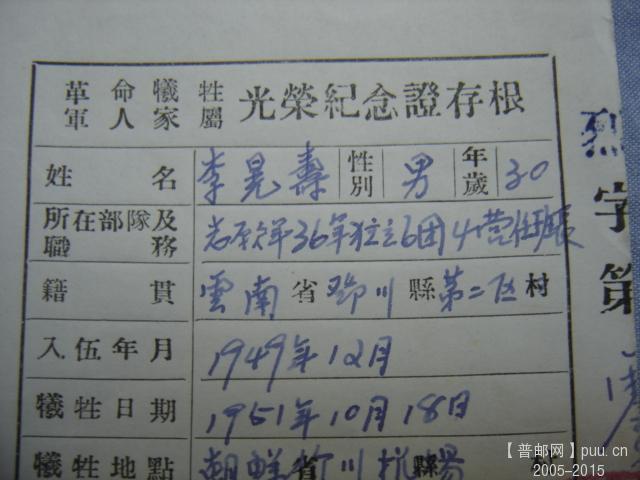 革命犧牲
軍人家屬 光榮紀念證存根
姓名 李晃壽 性別 男 年歲 30
所在部隊及職務 36年独立6团4营任班長
籍貫 雲南省鄧川縣第二区村
入伍年月 1949年12月
犧牲日期 1951年10月18日
犧牲地點 朝鮮省川縣場村
烈字第
【普邮网】puu.cn
2005-2015